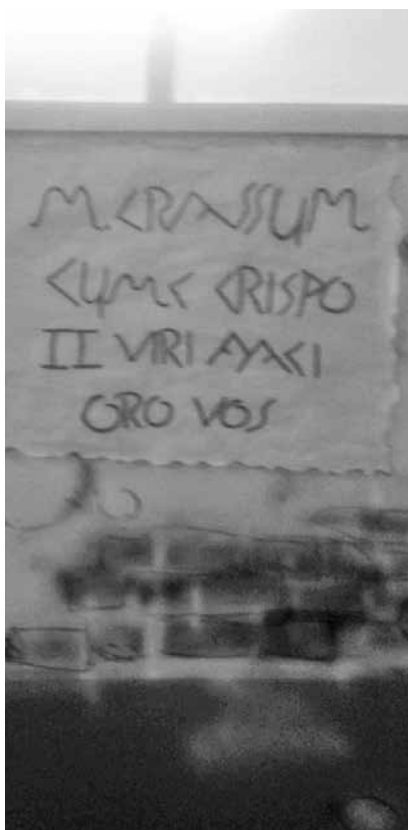 M. CRASSUM
CUM C CRISPO
II VIRI AYACI
ORO VOS